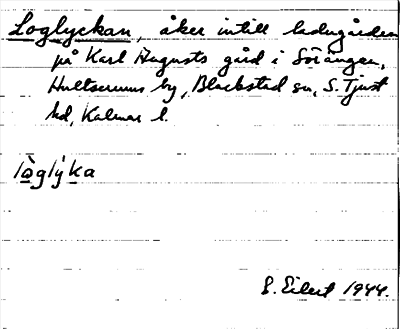 Loglyckan, åker intill ladugården
på Karl Augusts gård i Sörängen,
Hultserums by, Blackstad sn, S. Tjust
hd, Kalmar l.
lòglýka
S. Eilert 1944.